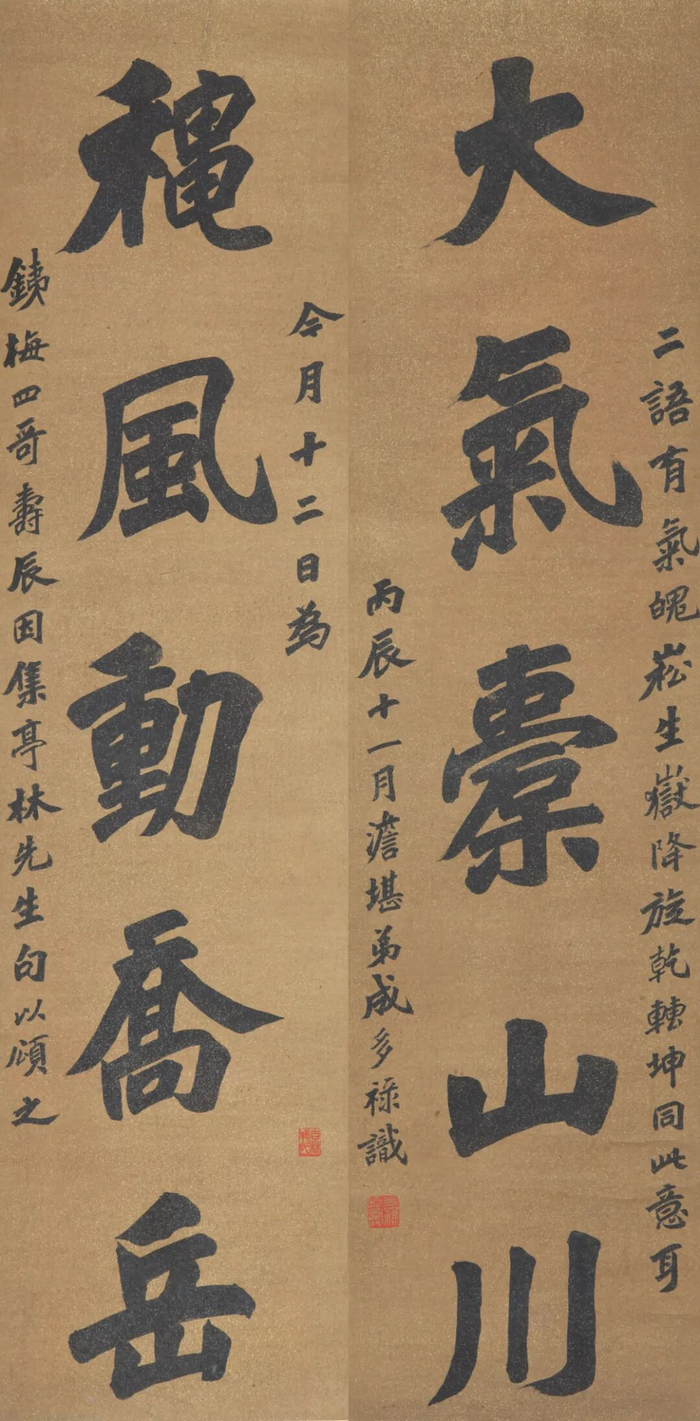 二語有氣魄崧生嶽降旋乾轉坤同此意耳
大氣槖山川
丙辰十一月澹堪弟成多祿識
今月十二日為
穐風動喬岳
銕梅四哥壽辰因集亭林先生句以頌之